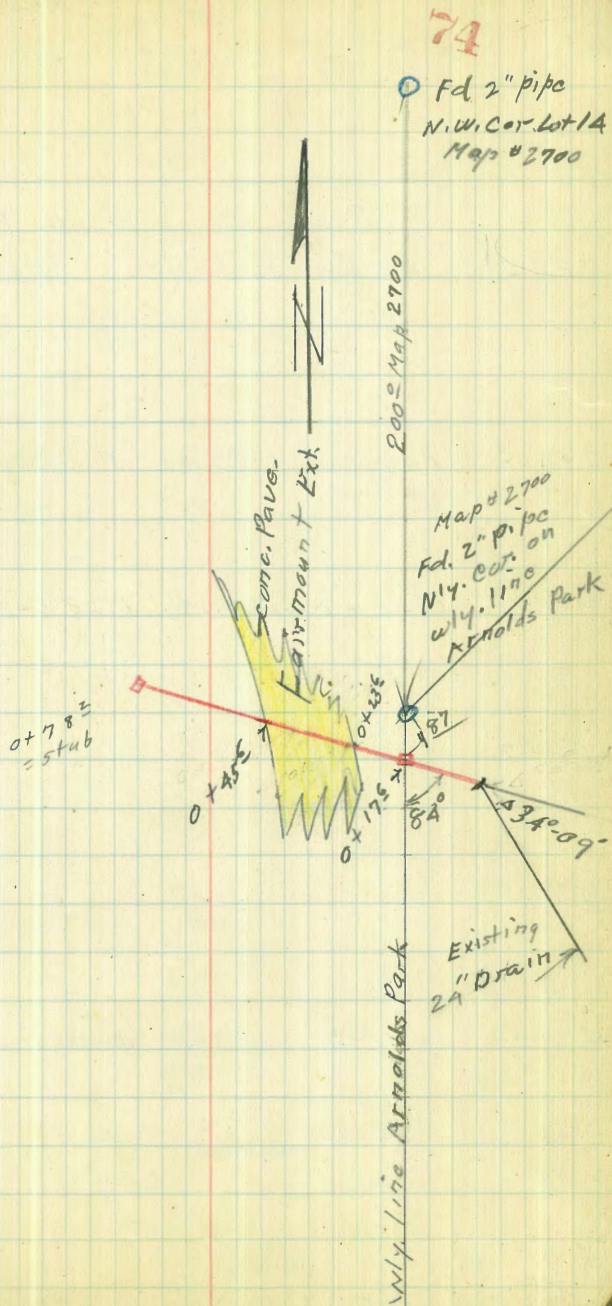 74
Fd. 2" pipe
N.W. Cor. Lot 14
Map #2700
200º Map 2700
Conc. Pave.
Fairmount Ext.
Map #2700
Fd. 2" pipe
Nly. Cor. on
wly. line
Arnolds Park
0+78²
= stub
0+45⁶
0+23⁶
0+17⁶
87
84°
Δ34°-09'
Existing
24" Drain
Wly. line Arnolds Park